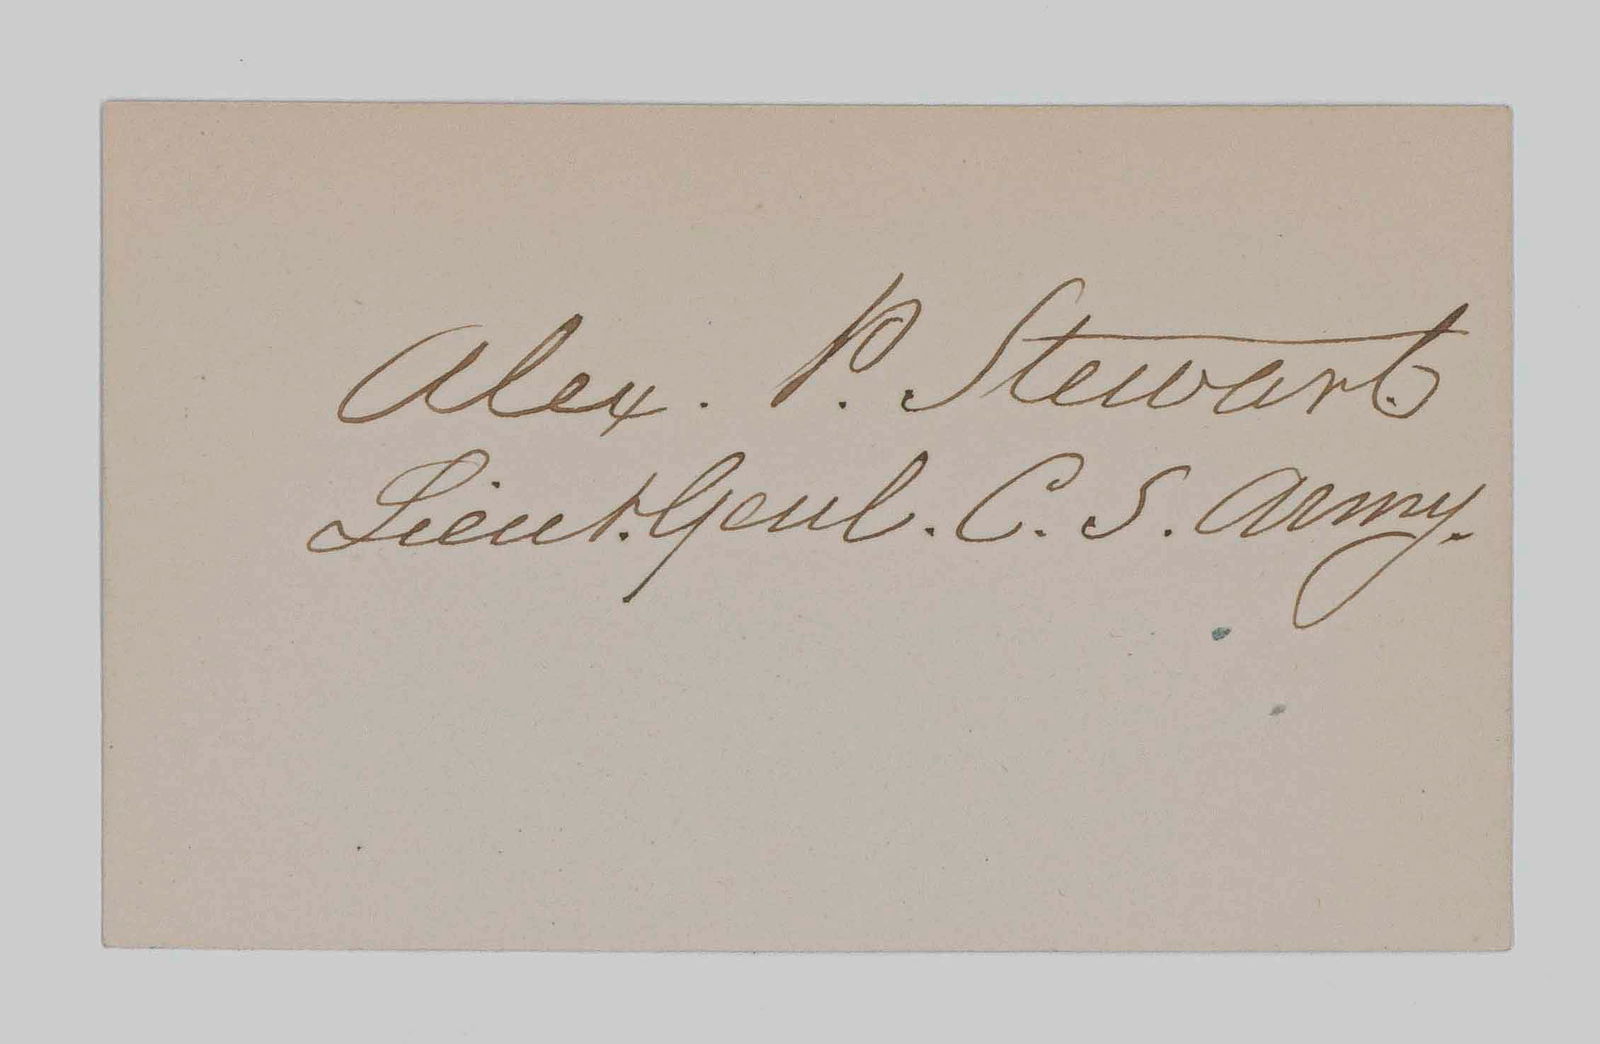 Alex. P. Stewart.
Lieut. Genl. C. S. Army.